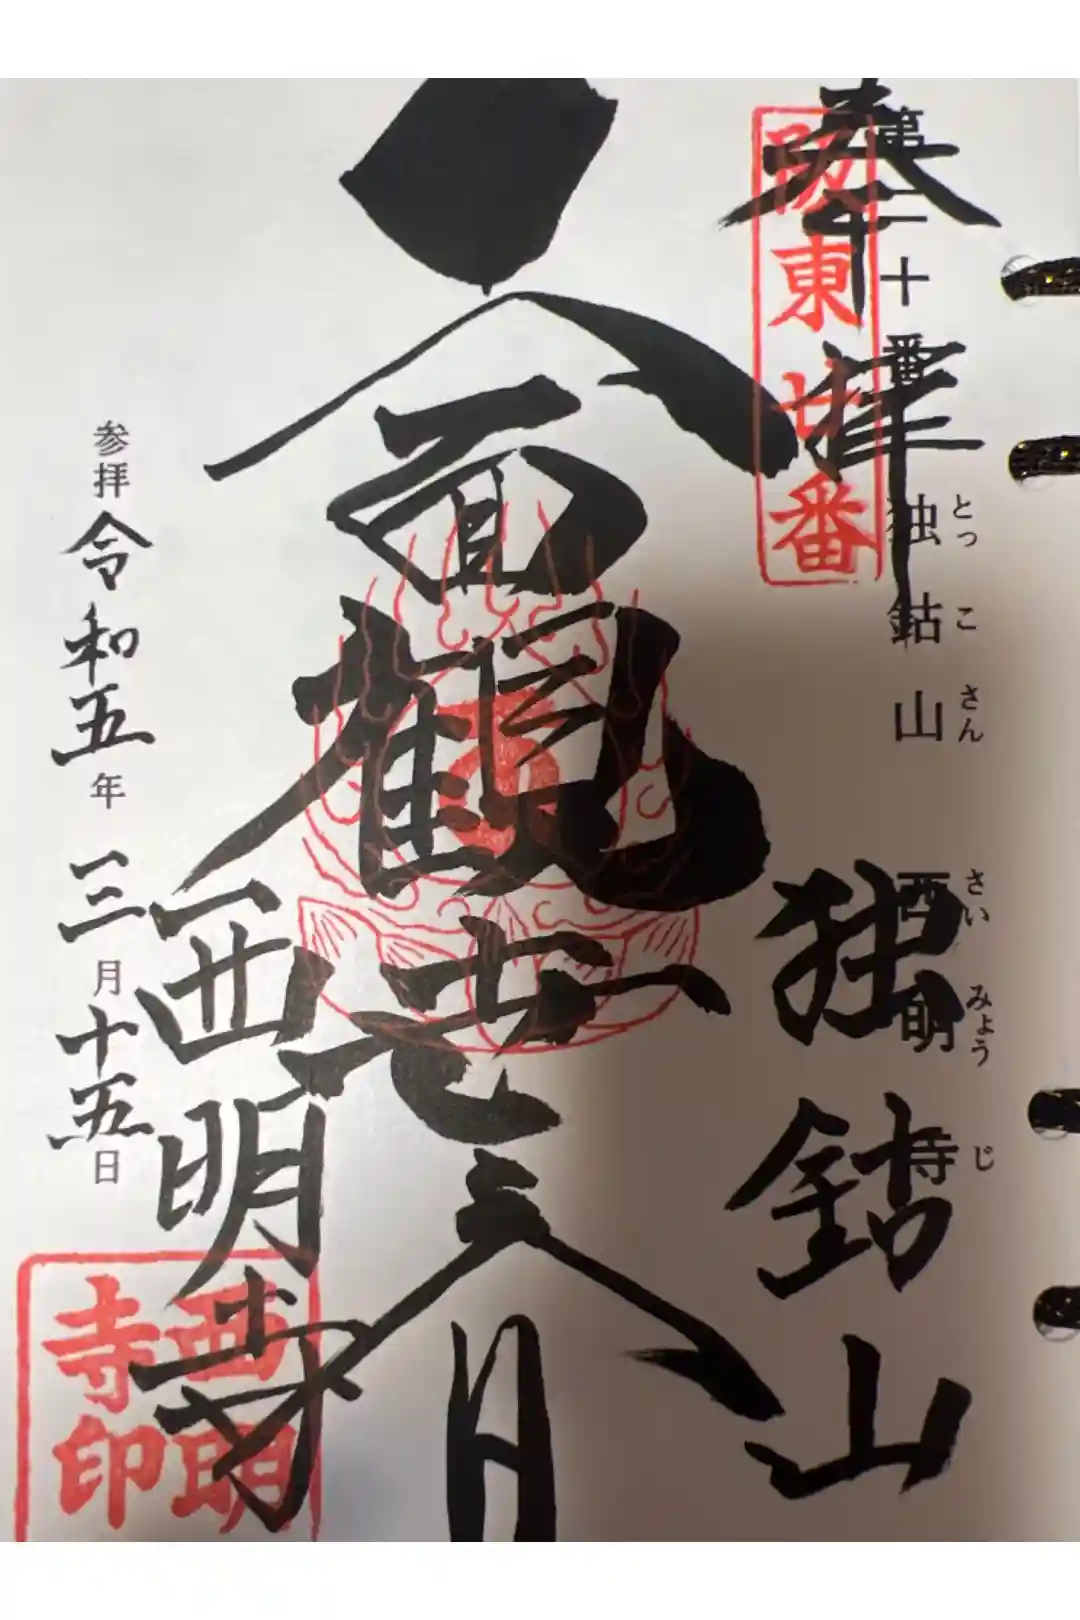 奉拝
第二十番
独鈷山
とっこさん
西明寺
さいみょうじ
独鈷山
阪東廿番
西明寺
西明
寺印
参拝令和五年三月十五日